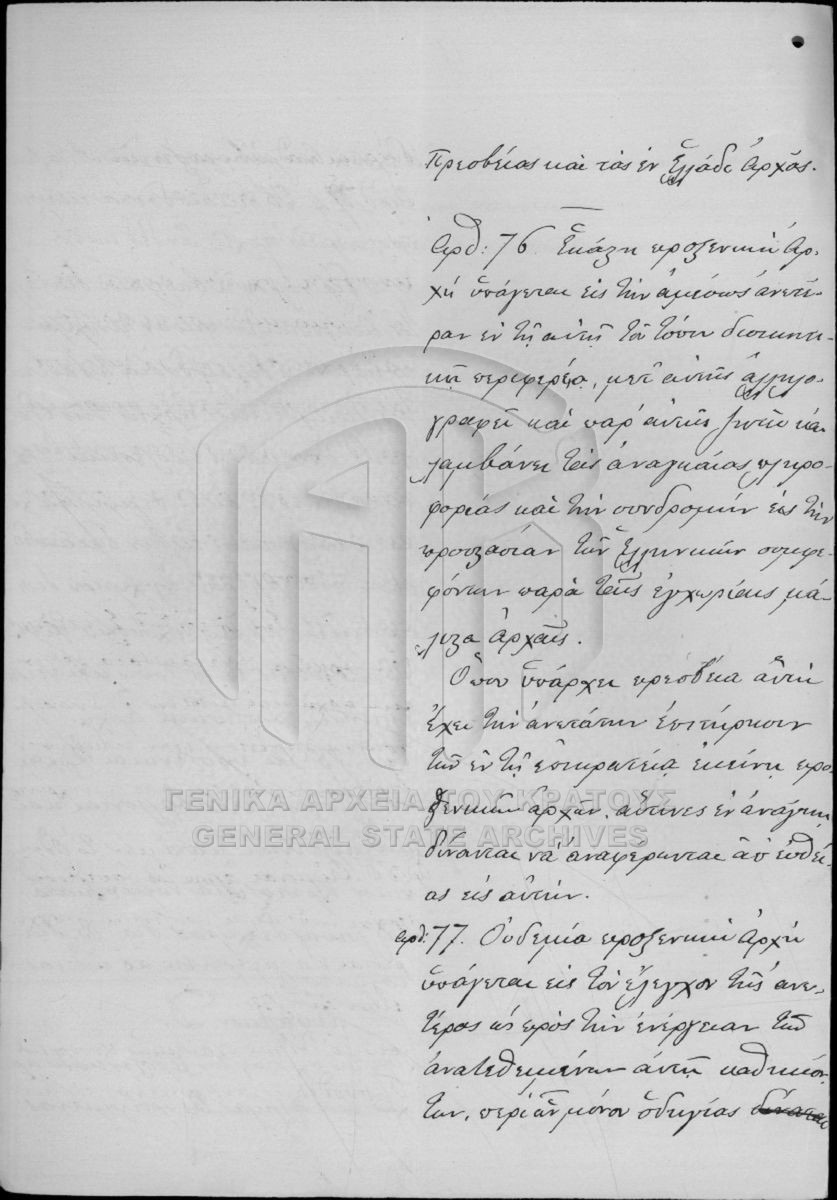 πρεσβείας καὶ τὰς ἐν Ἑλλάδι Ἀρχάς.
Ἄρθ: 76. Ἑκάστη προξενικὴ Ἀρ-
χὴ ὑπάγεται εἰς τὴν ἀμέσως ἀνωτέ-
ραν ἐν τῇ αὐτῇ τοῦ τόπου διοικητι-
κῇ περιφερείᾳ, μετ' αὐτῆς ἀλληλο-
γραφεῖ καὶ παρ' αὐτῆς
λαμβάνει τὰς ἀναγκαίας πληρο-
φορίας καὶ τὴν συνδρομὴν εἰς τὴν
προστασίαν τῶν Ἑλληνικῶν συμφε-
ρόντων παρὰ ταῖς ἐγχωρίαις μά-
λιστα ἀρχαῖς.
Ὅπου ὑπάρχει πρεσβεία αὕτη
ἔχει τὴν ἀνωτάτην ἐπιτήρησιν
τῶν ἐν τῇ ἐπικρατείᾳ ἐκείνῃ προ-
ξενικῶν ἀρχῶν, αἵτινες ἐν ἀνάγκῃ
δύνανται νὰ ἀναφέρωνται ἀπ' εὐθεί-
ας εἰς αὐτήν.
Ἄρθ: 77. Οὐδεμία προξενικὴ Ἀρχὴ
ὑπάγεται εἰς τὸν ἔλεγχον τῆς ἀνω-
τέρας ὡς πρὸς τὴν ἐνέργειαν τῶν
ἀνατεθειμένων αὐτῇ καθηκόν-
των, περὶ ὧν μόνον ὁδηγίας δύναται
ΓΕΝΙΚΑ ΑΡΧΕΙΑ ΤΟΥ ΚΡΑΤΟΥΣ
GENERAL STATE ARCHIVES